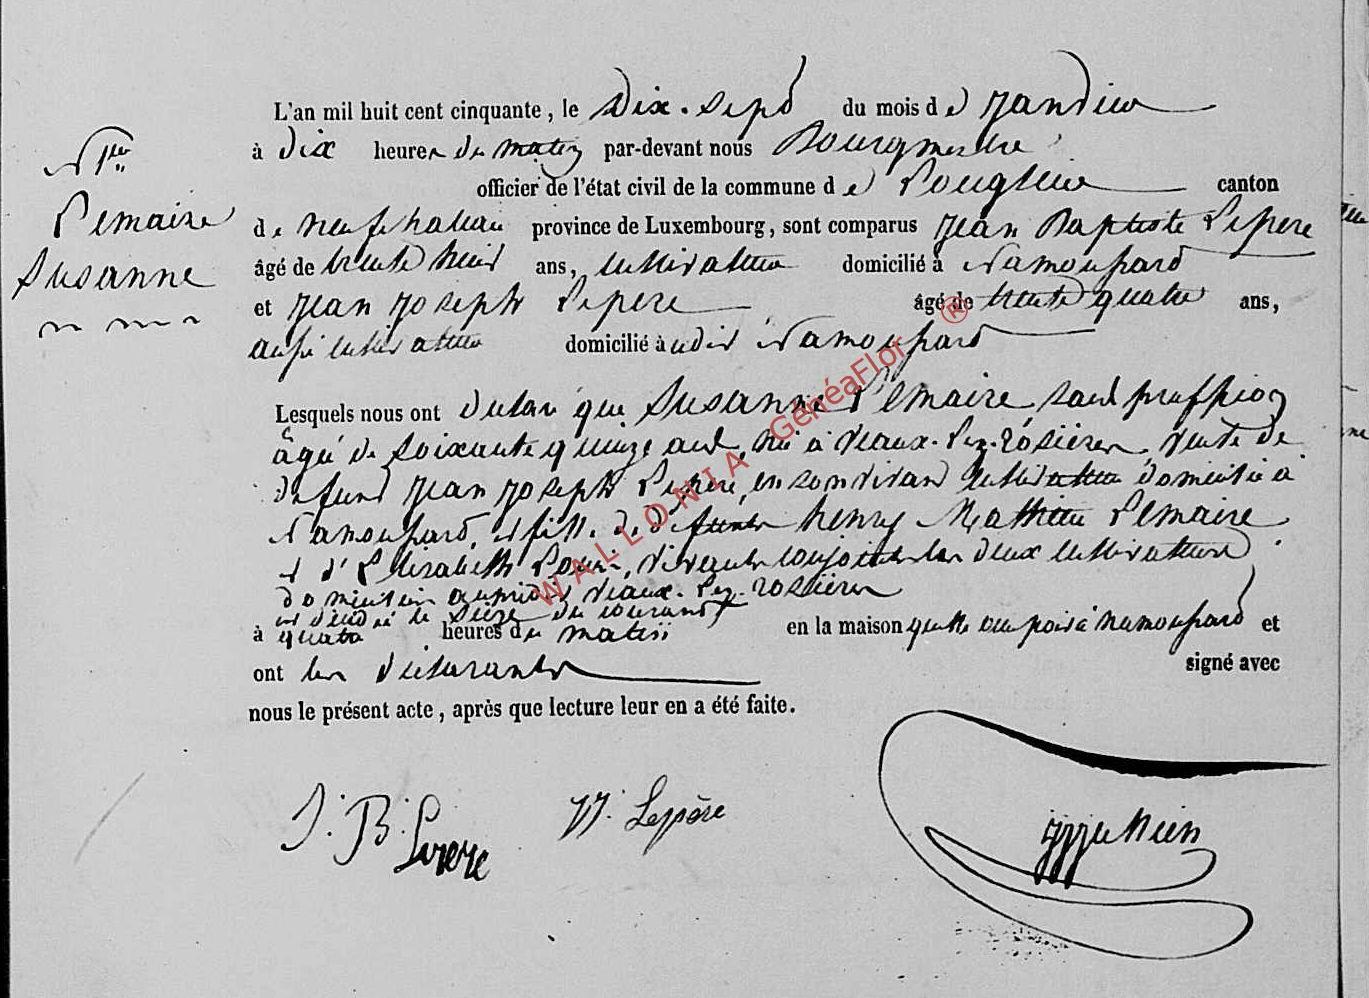 L'an mil huit cent cinquante, le dix-sept du mois de Janvier
à dix heures du matin par-devant nous Bourgmestre
officier de l'état civil de la commune de Longlier canton
de neufchateau province de Luxembourg, sont comparus Jean Baptiste Lepere
âgé de trente huit ans, cultivateur domicilié à Namoussard
et Jean Joseph Lepere âgé de trente quatre ans,
aussi cultivateur domicilié à udit Namoussard
Lesquels nous ont declaré que Susanne Lemaire sans proffession
âgée de soixante quinze ans, née à Veaux-Lez-Rosières, veuve de
defunt Jean Joseph Lepere, en son vivant cultivateur domicilié à
Namoussard, et fille de defunts henry Mathieu Lemaire
et d'Elisabeth, vivants conjoints les deux cultivateurs
domiciliés audit Veaux-Lez-rosières
est décédée le Seize du courant
à quatre heures du matin en la maison qu'elle occupoit à Namoussard et
ont les déclarants signé avec
nous le présent acte, après que lecture leur en a été faite.
Lemaire
Susanne
J. B. Lepere
JJ. Lepère
WALLONIA GénéaFlor ®